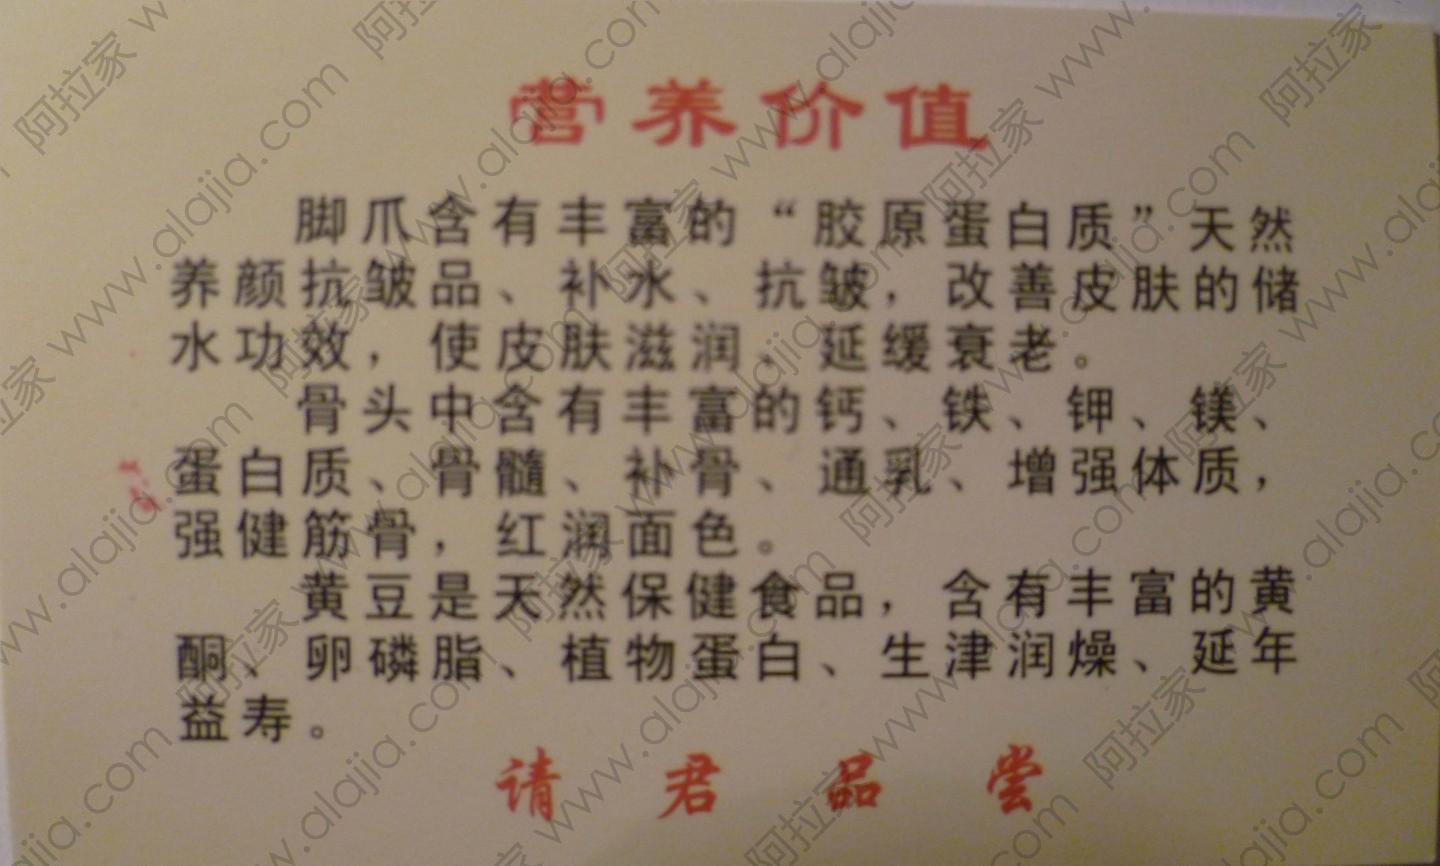 营养价值
脚爪含有丰富的“胶原蛋白质”天然
养颜抗皱品、补水、抗皱，改善皮肤的储
水功效，使皮肤滋润、延缓衰老。
骨头中含有丰富的钙、铁、钾、镁、
蛋白质、骨髓、补骨、通乳、增强体质，
强健筋骨，红润面色。
黄豆是天然保健食品，含有丰富的黄
酮、卵磷脂、植物蛋白、生津润燥、延年
益寿。
请君品尝
阿拉家 www.alajia.com